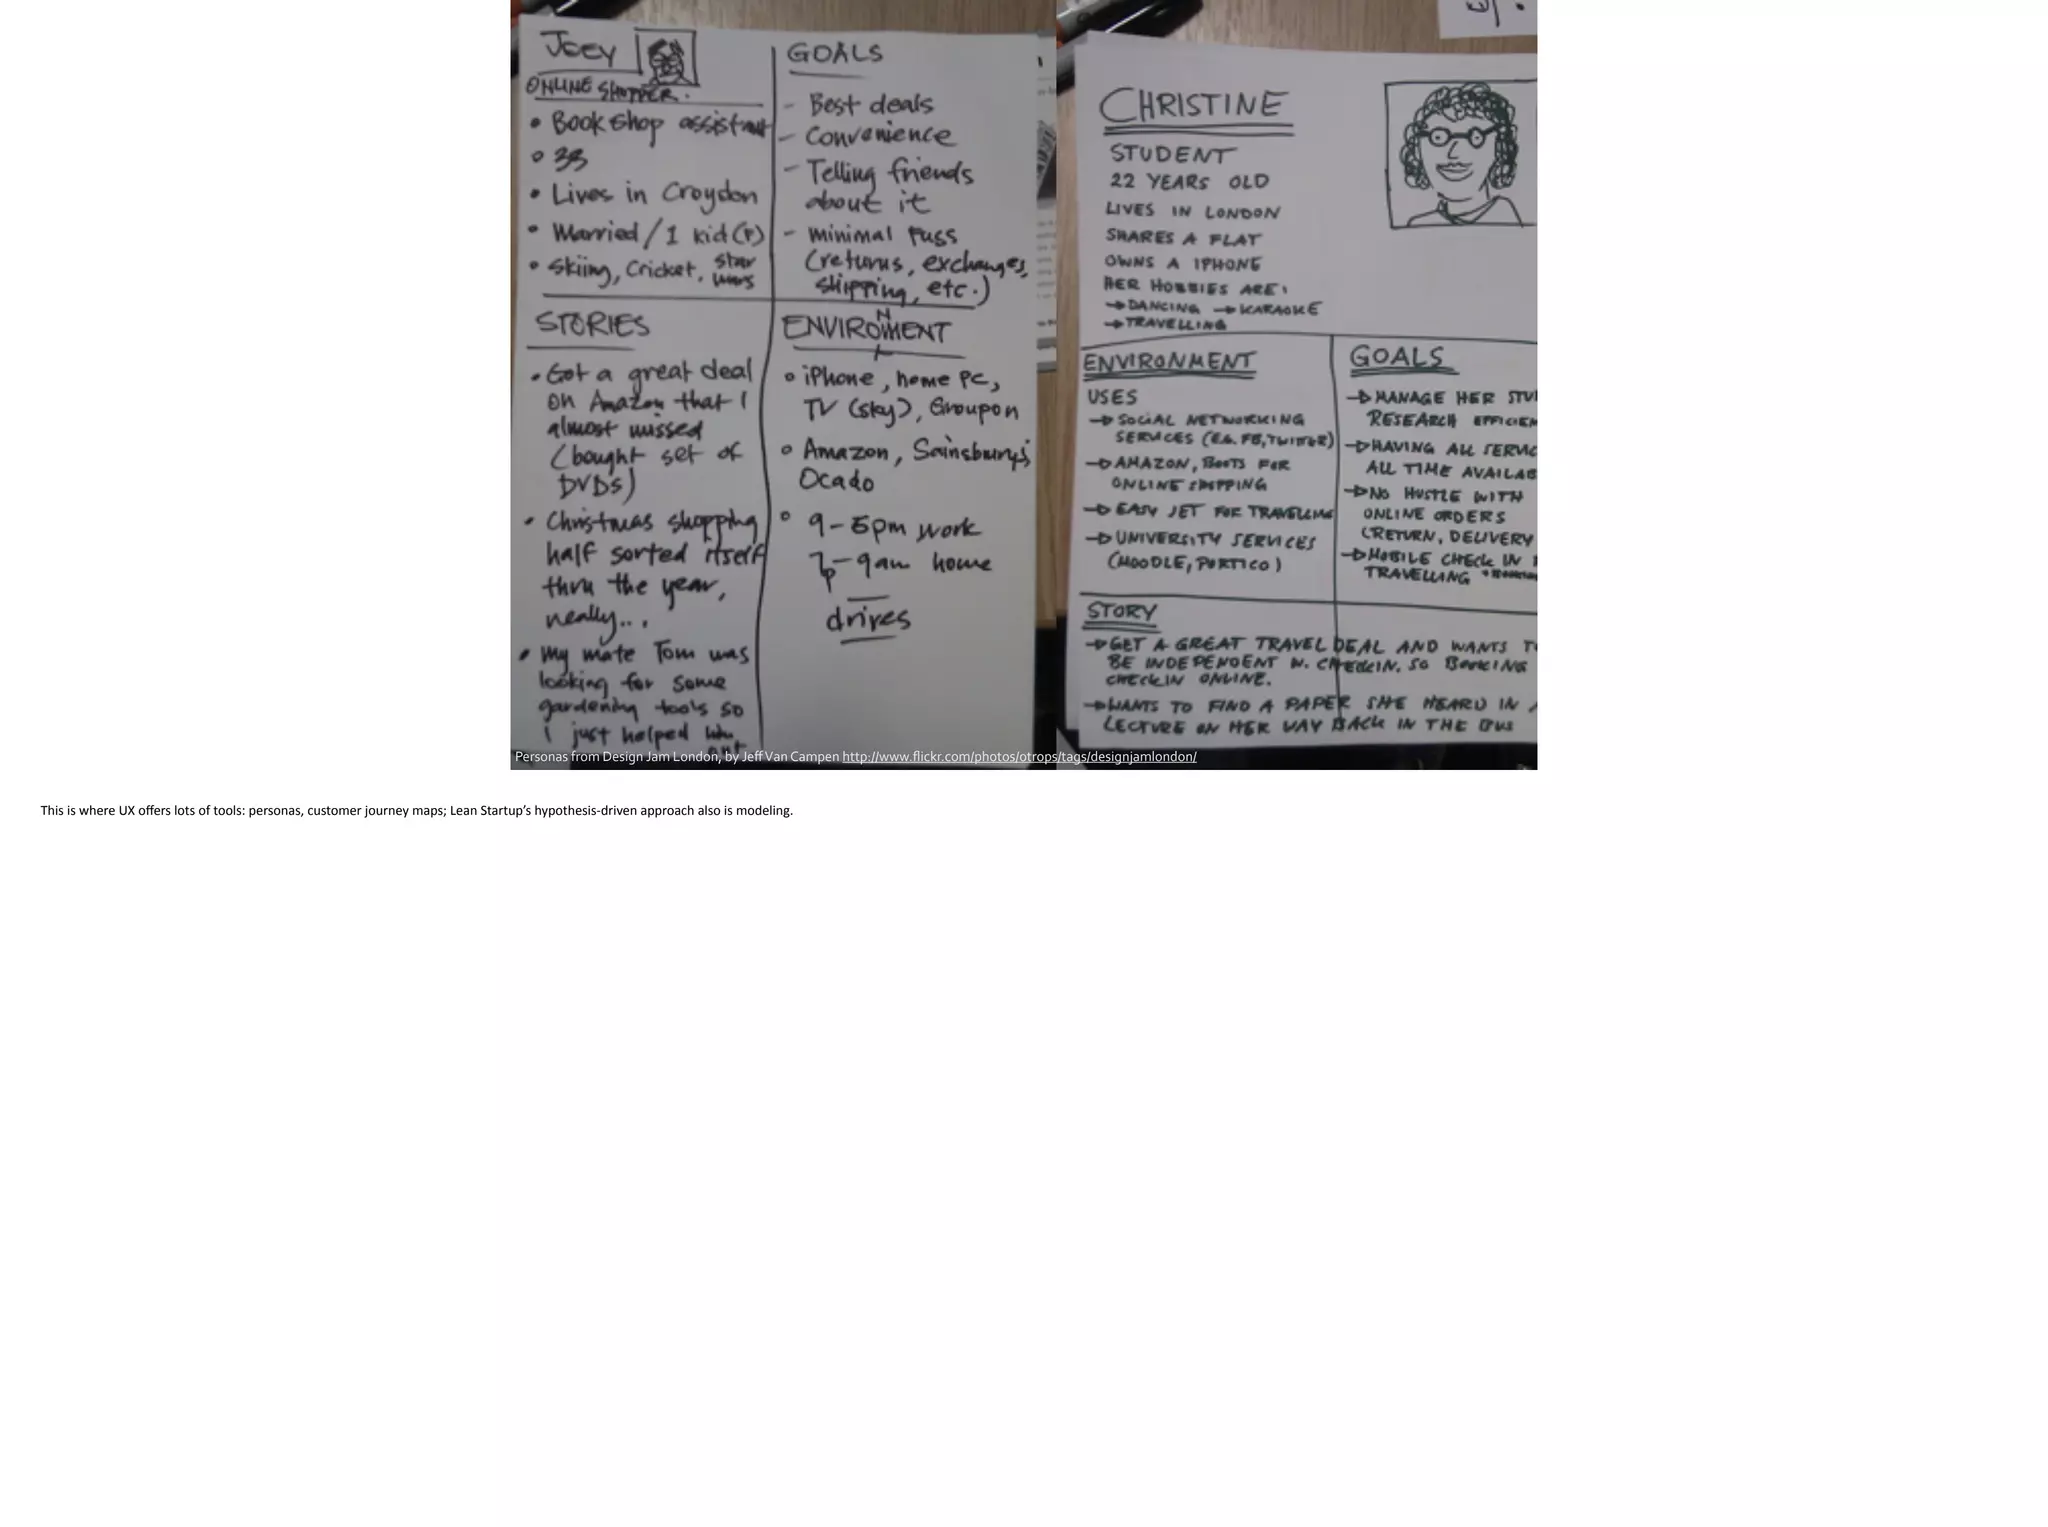 JOEY
ONLINE SHOPPER.
• Bookshop assistant
• 33
• Lives in Croydon
• Married/1 kid(F)
• Skiing, Cricket, Star Wars
GOALS
- Best deals
- Convenience
- Telling friends
about it
- minimal fuss
(returns, exchanges,
shipping, etc.)
STORIES
• Got a great deal
on Amazon that I
almost missed
(bought set of
DVDs)
• Christmas shopping
half sorted itself
thru the year,
really...
• My mate Tom was
looking for some
gardening tools so
I just helped him
out
ENVIRONMENT
• iPhone, home PC,
TV (Sky), Groupon
• Amazon, Sainsbury's,
Ocado
• 9-5pm work
7p-9am home
drives
CHRISTINE
STUDENT
22 YEARS OLD
LIVES IN LONDON
SHARES A FLAT
OWNS A IPHONE
HER HOBBIES ARE:
→DANCING →KARAOKE
→TRAVELLING
ENVIRONMENT
USES
→SOCIAL NETWORKING
SERVICES (E.G. FB, TWITTER)
→AMAZON, BOOTS FOR
ONLINE SHOPPING
→EASY JET FOR TRAVELLING
→UNIVERSITY SERVICES
(MOODLE, PORTICO)
GOALS
→MANAGE HER STU
RESEARCH EFFICIEN
→HAVING ALL SERVIC
ALL TIME AVAILAB
→NO HUSTLE WITH
ONLINE ORDERS
(RETURN, DELIVERY
→MOBILE CHECK IN
TRAVELLING
STORY
→GET A GREAT TRAVEL DEAL AND WANTS TO
BE INDEPENDENT W. CHECKIN. SO BOOKING
CHECKIN ONLINE.
→WANTS TO FIND A PAPER SHE HEARD IN A
LECTURE ON HER WAY BACK IN THE BUS
Personas from Design Jam London, by Jeff Van Campen http://www.flickr.com/photos/otrops/tags/designjamlondon/
This is where UX offers lots of tools: personas, customer journey maps; Lean Startup’s hypothesis-driven approach also is modeling.